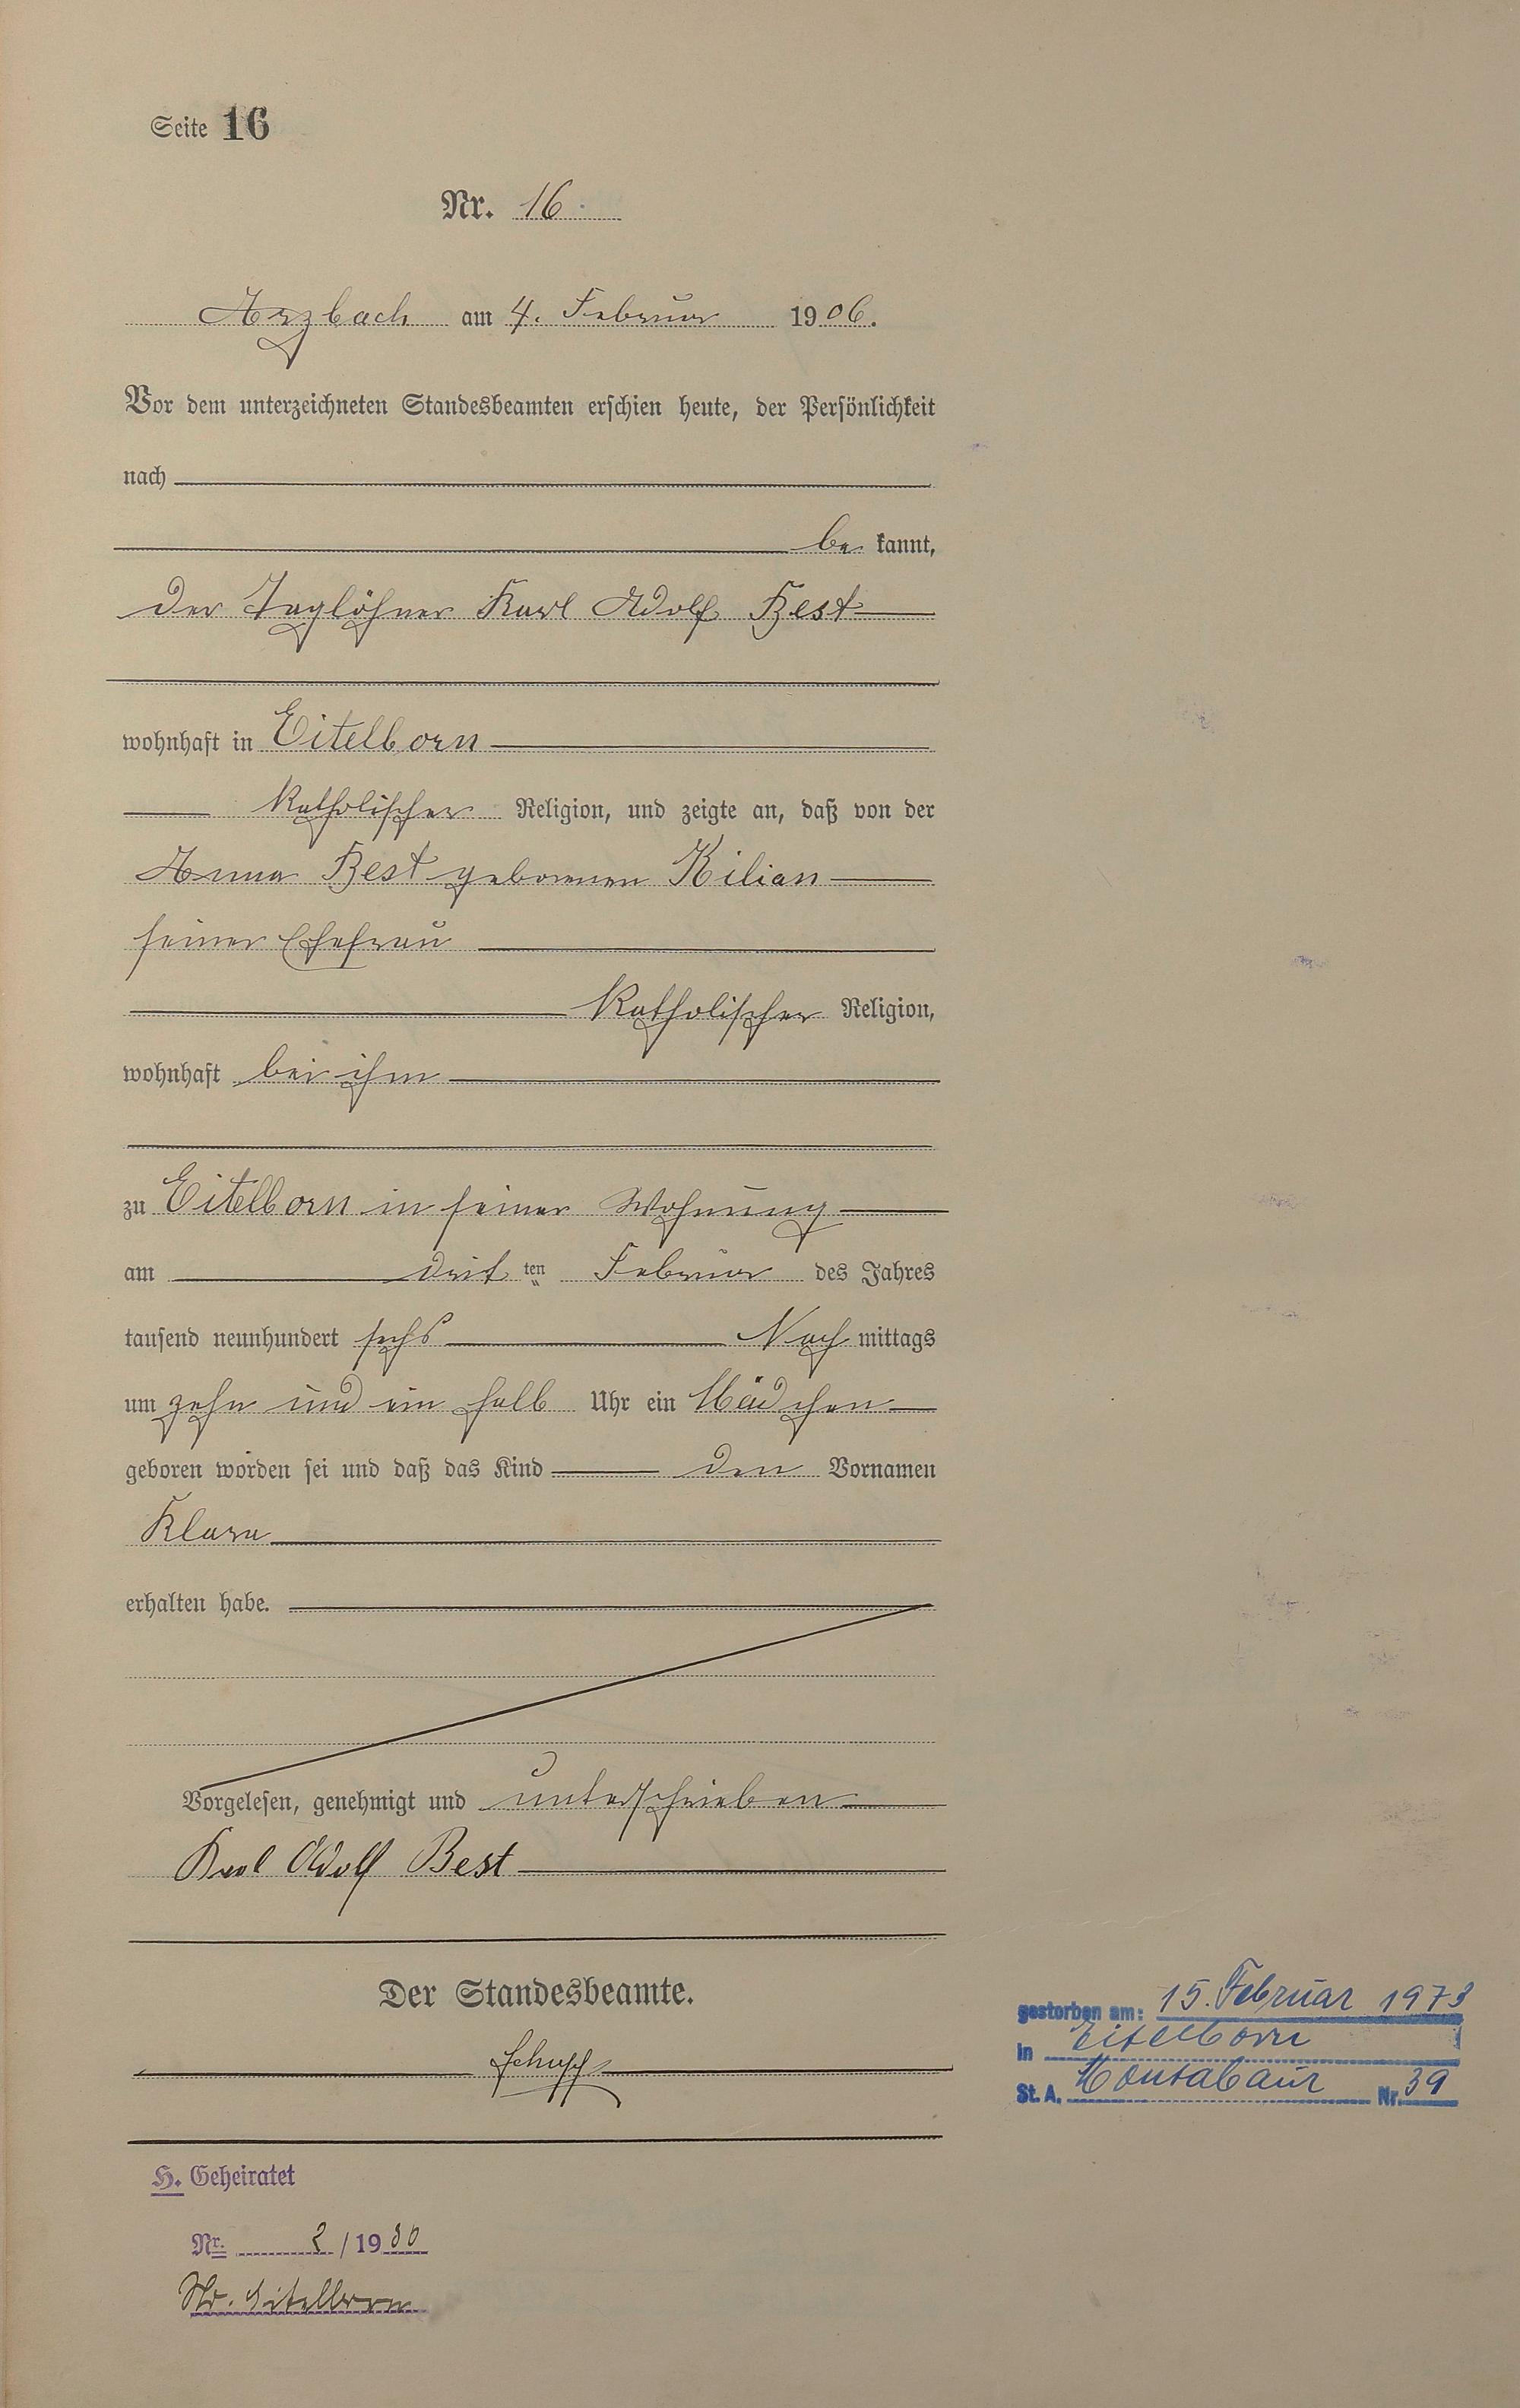 Seite 16
Nr. 16.
Arzbach am 4. Februar 1906.
Vor dem unterzeichneten Standesbeamten erschien heute, der Persönlichkeit
nach
be kannt,
der Taglöhner Karl Adolf Best
wohnhaft in Eitelborn
katholischer Religion, und zeigte an, daß von der
Anna Best geborenen Kilian
seiner Ehefrau
katholischer Religion,
wohnhaft bei ihm
zu Eitelborn in seiner Wohnung
am drit ten Februar des Jahres
tausend neunhundert sechs Nach mittags
um zehn und ein halb Uhr ein Mädchen
geboren worden sei und daß das Kind den Vornamen
Klara
erhalten habe.
Vorgelesen, genehmigt und unterschrieben
Karl Adolf Best
Der Standesbeamte.
gestorben am: 15. Februar 1973
in Eitelborn
St. A. Montabaur Nr. 39
H. Geheiratet
Nr. 2 / 1930
Eitelborn